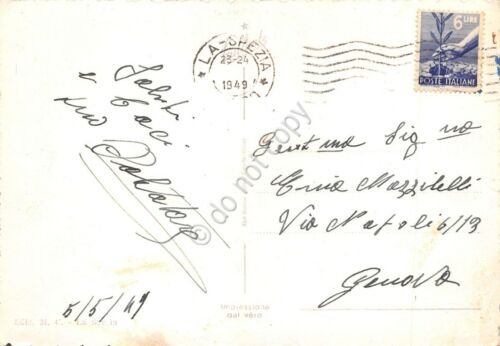 LA SPEZIA
23-24
1949
6 LIRE
POSTE ITALIANE
Saluti
e baci
tuo
Gent ma Sig na
Mazzitelli
Via Napoli 6/13
Genova
5/5/49
Impressione
dal vero
do not copy